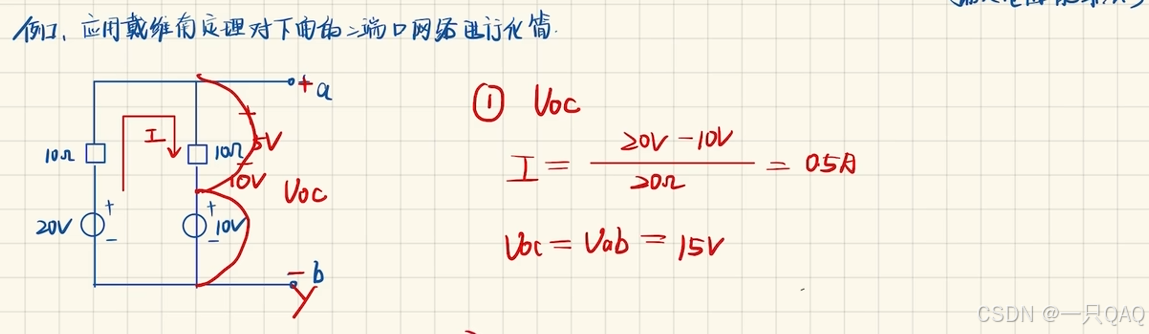 例1、应用戴维南定理对下面的二端口网络进行化简.
+ a
10Ω
I
10Ω
+
5V
−
10V
Uoc
20V
+
−
+
10V
−
− b
① Uoc
I = 20V −10V / 20Ω = 0.5A
Uoc = Uab = 15V
CSDN @一只QAQ